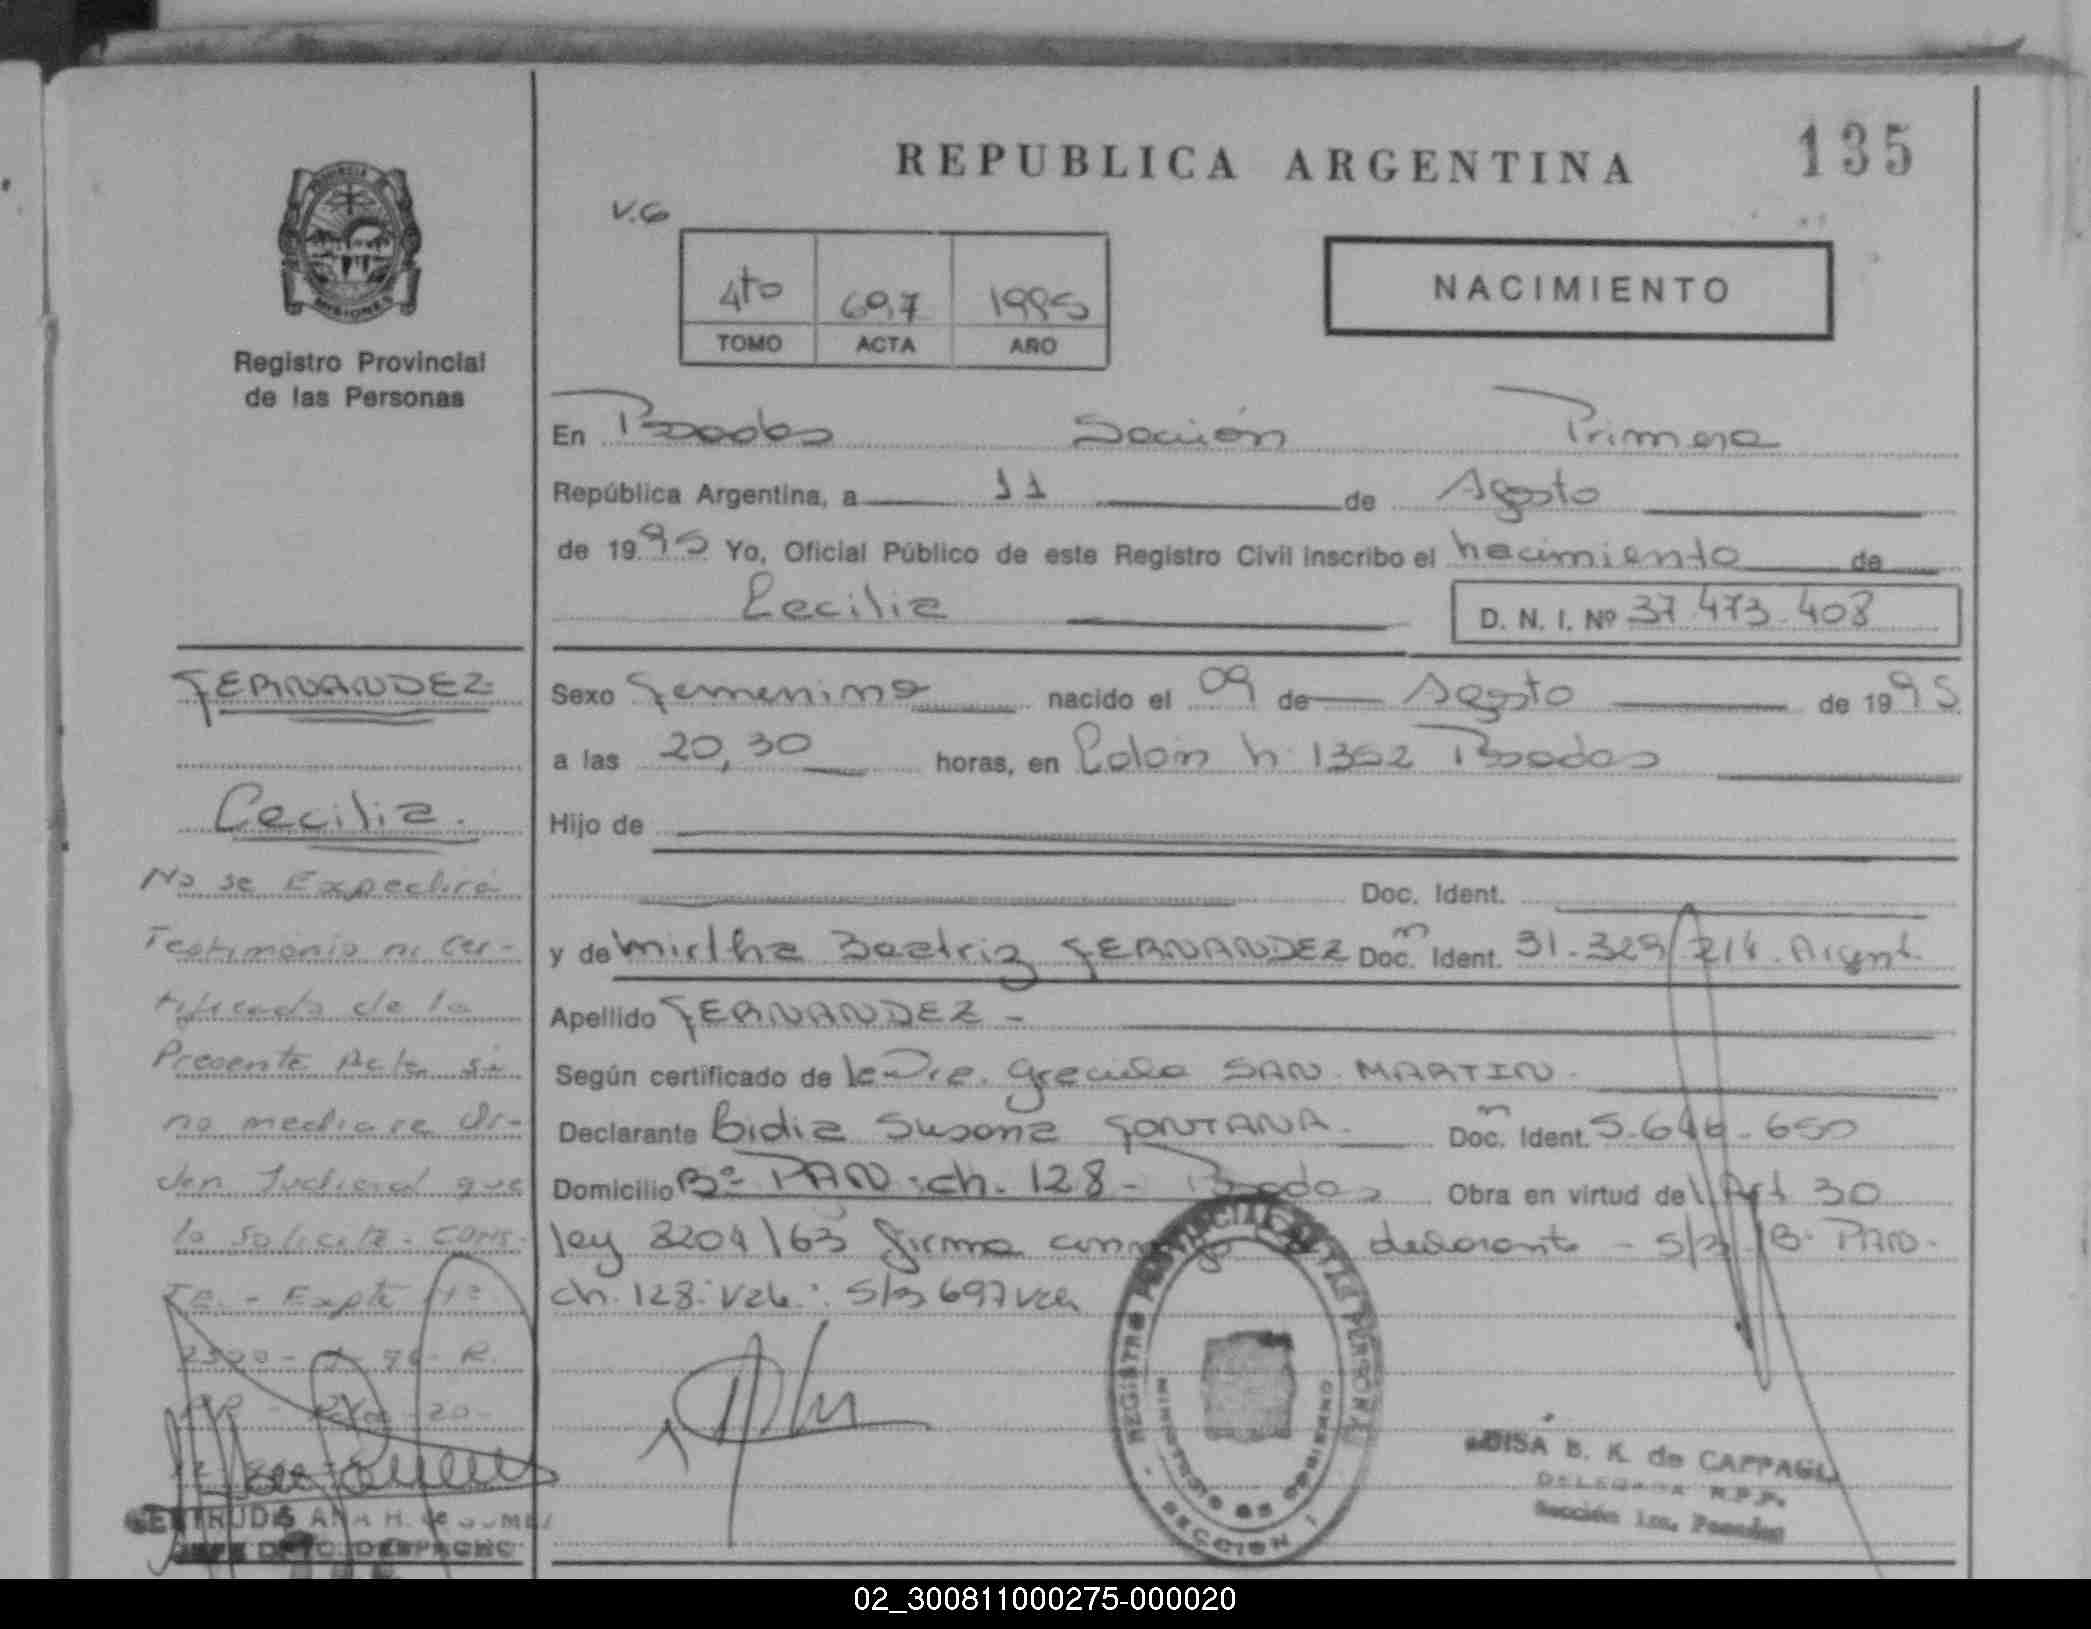 REPUBLICA ARGENTINA
135
V.G
4to 697 1995
TOMO ACTA AÑO
NACIMIENTO
MISIONES
Registro Provincial
de las Personas
En Posadas Sección Primera
República Argentina, a 11 de Agosto
de 1995 Yo, Oficial Público de este Registro Civil inscribo el nacimiento de
Cecilia
D. N. I. Nº 37.473.408
Sexo femenino nacido el 09 de Agosto de 1995
a las 20,30 horas, en Colón n 1352 Posadas
Hijo de
Doc. Ident.
y de Mirtha Beatriz FERNANDEZ Doc. Ident. 31.329.214. Argent.
Apellido FERNANDEZ -
Según certificado de la Dra. Graciela SAN MARTIN.
Declarante Lidia Susana FONTANA. Doc. Ident. 5.646.650
Domicilio Bº PAN. ch. 128 - Posadas Obra en virtud del Art 30
ley 3204/63 firma declarante - S/B B. PAN.
ch. 128. vale. S/B 697 vale
FERNANDEZ
Cecilia.
No se Expedirá
Testimonio ni Cer-
tificado de la
Presente Acta si
no mediare Or-
den Judicial que
lo Solicite. CONS-
TE. - Expte Nº
REGISTRO PROVINCIAL DE LAS PERSONAS
MINISTERIO DE GOBIERNO
SECCION 1
B. K. de CAPPAGLI
DELEGADA R.P.P.
Sección 1ra. Posadas
GERTRUDIS ANA H. de GOMEZ
JEFE DPTO. DESPACHO
02_300811000275-000020